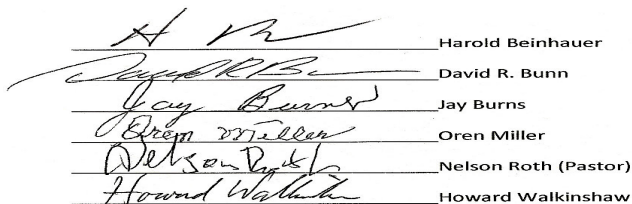 H B Harold Beinhauer
David R. B David R. Bunn
Jay Burns Jay Burns
Oren Miller Oren Miller
Nelson Roth Nelson Roth (Pastor)
Howard Walkinshaw Howard Walkinshaw